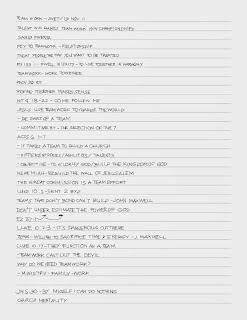 TEAM WORK - 
TALENT WIN GAMES TEAM WORK WIN CHAMPIONSHIPS
KEY TO TEAMWORK - RELATIONSHIP
TREAT PEOPLE THE WAY YOU WANT TO BE TREATED
PS 133:1 - DWELL IN UNITY - TO LIVE TOGETHER IN HARMONY
TEAMWORK - WORK TOGETHER
PROV 
TOGETHER MAKES SENSE
MT 4:18-22 - COME FOLLOW ME
TEAMWORK TO CHANGE THE WORLD
- BE PART OF A TEAM
- COMMITMENT BY - THE DIRECTION OF THE 7
ACTS 6:1-7
- IT TAKES A TEAM TO BUILD A CHURCH
- DIFFERENT ABILITIES / TALENTS
- OBJECTIVE - TO GLORIFY GOD / BUILD THE KINGDOM OF GOD
NEHEMIAH - REBUILD THE WALL OF JERUSALEM
THE GREAT COMMISSION IS A TEAM EFFORT
LUKE 10:1 - SENT 2 BY 2
TEAMS THAT DON'T BOND CAN'T BUILD - JOHN MAXWELL
DON'T UNDER ESTIMATE THE POWER OF GOD
LUKE 10:2-3 - IT'S DANGEROUS OUT THERE
TEAM - WILLING TO SACRIFICE TIME & ENERGY - J. MAXWELL
LUKE 10:17 - THEY FUNCTION AS A TEAM
- TEAMWORK CAST OUT THE DEVIL
WHY DO WE NEED TEAMWORK?
- MINISTRY - FAMILY - WORK
JN 5:30 - BY MYSELF I CAN DO NOTHING
CHURCH MENTALITY